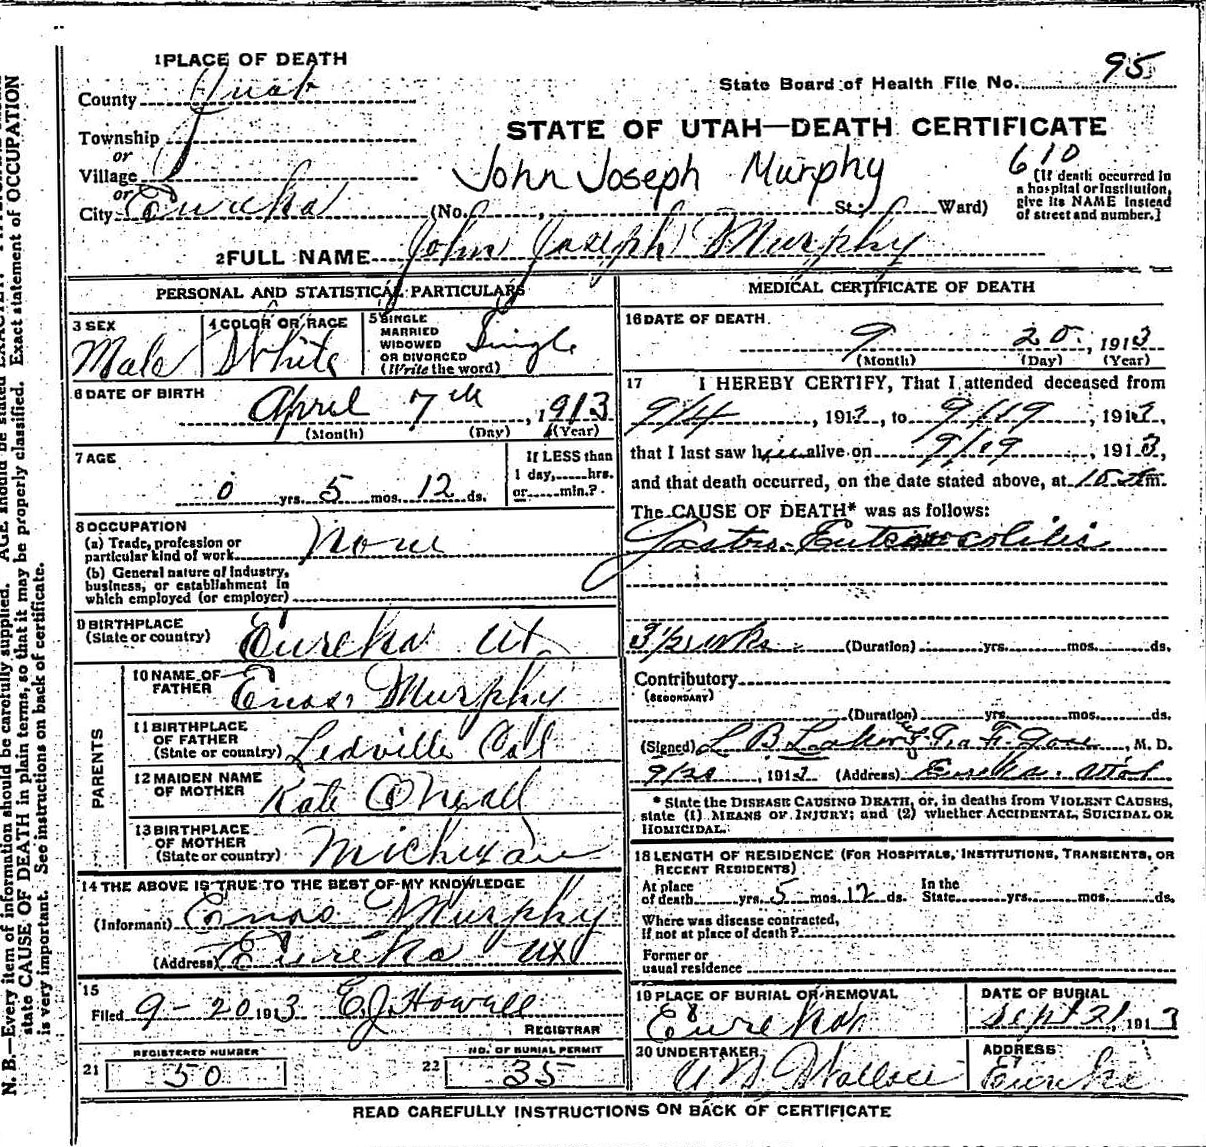 1 PLACE OF DEATH
County Juab
Township
or
Village
or
City Eureka
State Board of Health File No. 95
STATE OF UTAH—DEATH CERTIFICATE
John Joseph Murphy
610
(No. , St.; Ward)
(If death occurred in
a hospital or institution,
give its NAME instead
of street and number.]
2 FULL NAME John Joseph Murphy
PERSONAL AND STATISTICAL PARTICULARS
3 SEX
Male
4 COLOR OR RACE
White
5 SINGLE
MARRIED
WIDOWED
OR DIVORCED
(Write the word)
Single
6 DATE OF BIRTH
April 7th, 1913
(Month) (Day) (Year)
7 AGE
0 yrs. 5 mos. 12 ds.
If LESS than
1 day, hrs.
or min.?
8 OCCUPATION
(a) Trade, profession or
particular kind of work None
(b) General nature of industry,
business, or establishment in
which employed (or employer)
9 BIRTHPLACE
(State or country) Eureka Ut
PARENTS
10 NAME OF
FATHER Enos Murphy
11 BIRTHPLACE
OF FATHER
(State or country) Ledville Col
12 MAIDEN NAME
OF MOTHER Kate O'Neall
13 BIRTHPLACE
OF MOTHER
(State or country) Michigan
14 THE ABOVE IS TRUE TO THE BEST OF MY KNOWLEDGE
(Informant) Enos Murphy
(Address) Eureka Ut
15
Filed 9-20 1913 E.J. Howell
REGISTRAR
REGISTERED NUMBER
21 50
NO. OF BURIAL PERMIT
22 35
MEDICAL CERTIFICATE OF DEATH
16 DATE OF DEATH
9 20, 1913
(Month) (Day) (Year)
17 I HEREBY CERTIFY, That I attended deceased from
9/4, 1913, to 9/19, 1913,
that I last saw him alive on 9/19, 1913,
and that death occurred, on the date stated above, at m.
The CAUSE OF DEATH* was as follows:
Gastro-Entero colitis
3 1/2 wks. (Duration) yrs. mos. ds.
Contributory
(SECONDARY)
(Duration) yrs. mos. ds.
(Signed) L B , M. D.
9/20, 1913 (Address) Eureka
* State the DISEASE CAUSING DEATH, or, in deaths from VIOLENT CAUSES,
state (1) MEANS OF INJURY; and (2) whether ACCIDENTAL, SUICIDAL OR
HOMICIDAL.
18 LENGTH OF RESIDENCE (FOR HOSPITALS, INSTITUTIONS, TRANSIENTS, OR
RECENT RESIDENTS)
At place
of death yrs. 5 mos. 12 ds.
In the
State yrs. mos. ds.
Where was disease contracted,
if not at place of death?
Former or
usual residence
19 PLACE OF BURIAL OR REMOVAL
Eureka
DATE OF BURIAL
Sept 21, 1913
20 UNDERTAKER
Wallace
ADDRESS
Eureka
READ CAREFULLY INSTRUCTIONS ON BACK OF CERTIFICATE
N. B.—Every item of information should be carefully supplied. AGE should be stated EXACTLY.
state CAUSE OF DEATH in plain terms, so that it may be properly classified. Exact statement of OCCUPATION
is very important. See instructions on back of certificate.